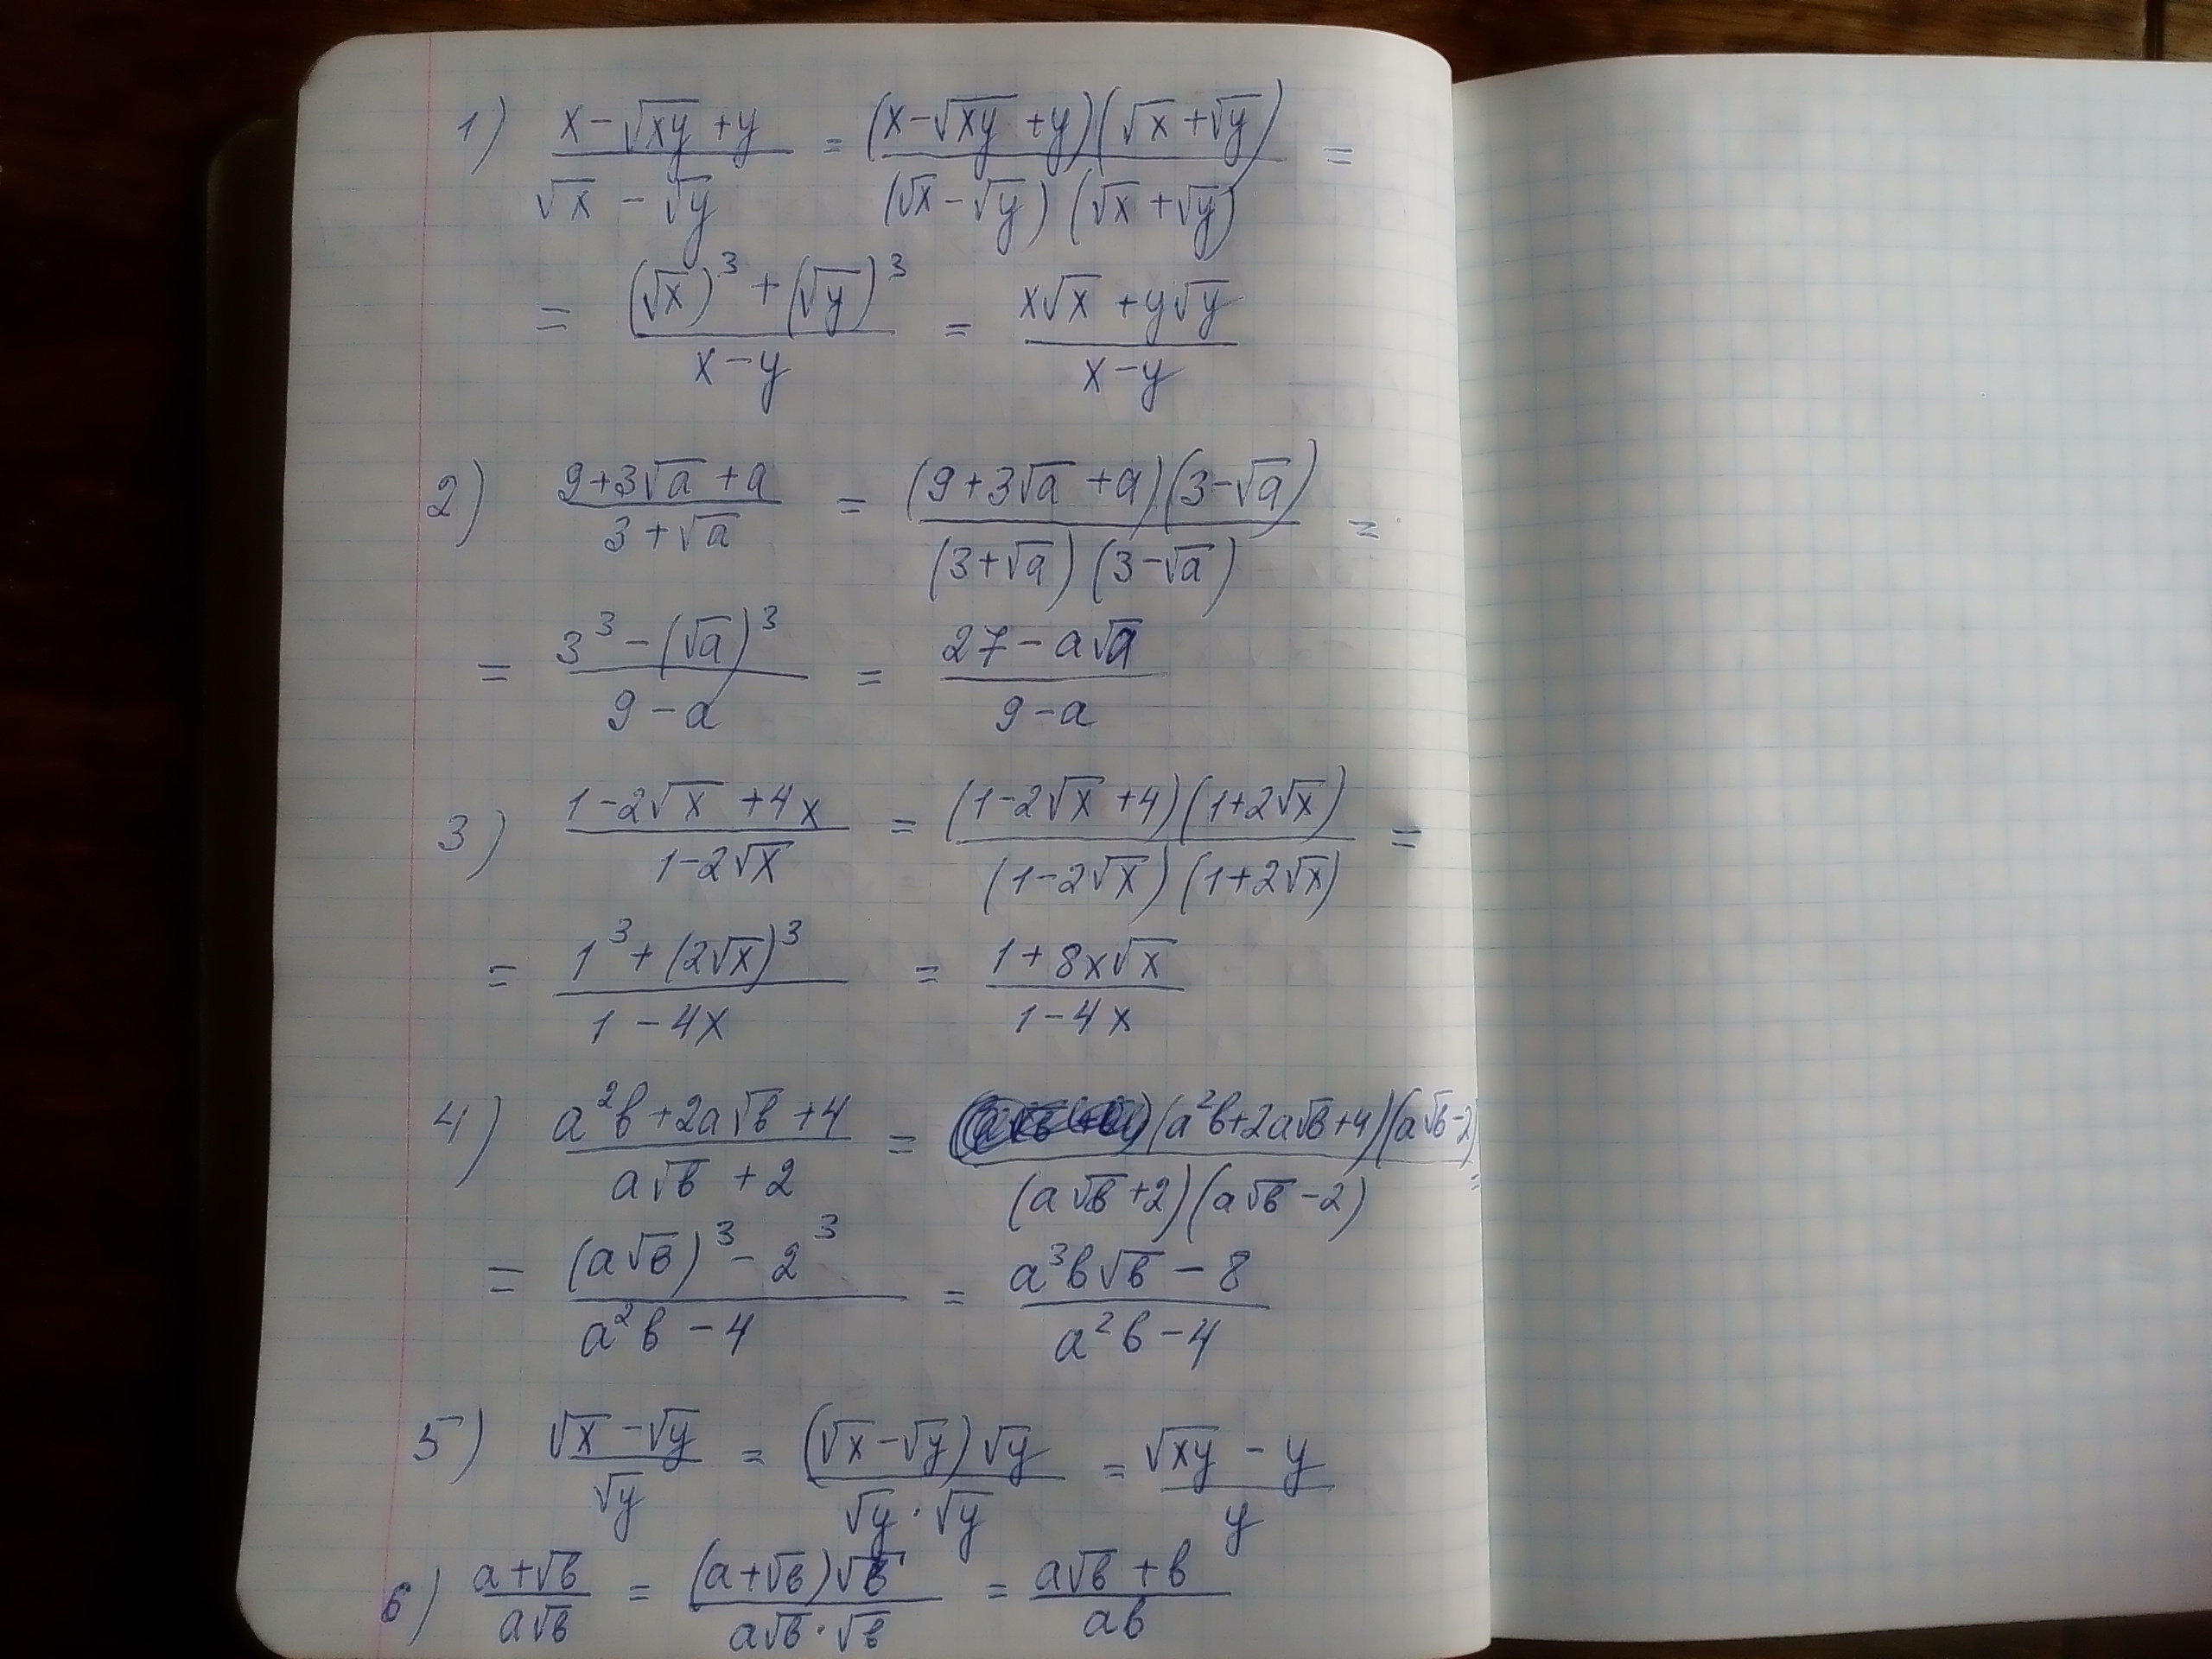 1) (x-√xy+y)/(√x-√y) = ((x-√xy+y)(√x+√y))/((√x-√y)(√x+√y)) =
= ((√x)³+(√y)³)/(x-y) = (x√x+y√y)/(x-y)
2) (9+3√a+a)/(3+√a) = ((9+3√a+a)(3-√a))/((3+√a)(3-√a)) =
= (3³-(√a)³)/(9-a) = (27-a√a)/(9-a)
3) (1-2√x+4x)/(1-2√x) = ((1-2√x+4)(1+2√x))/((1-2√x)(1+2√x)) =
= (1³+(2√x)³)/(1-4x) = (1+8x√x)/(1-4x)
4) (a²b+2a√b+4)/(a√b+2) = ((a²b+2a√b+4)(a√b-2))/((a√b+2)(a√b-2)) =
= ((a√b)³-2³)/(a²b-4) = (a³b√b-8)/(a²b-4)
5) (√x-√y)/√y = ((√x-√y)√y)/(√y·√y) = (√xy-y)/y
6) (a+√b)/(a√b) = ((a+√b)√b)/(a√b·√b) = (a√b+b)/(ab)